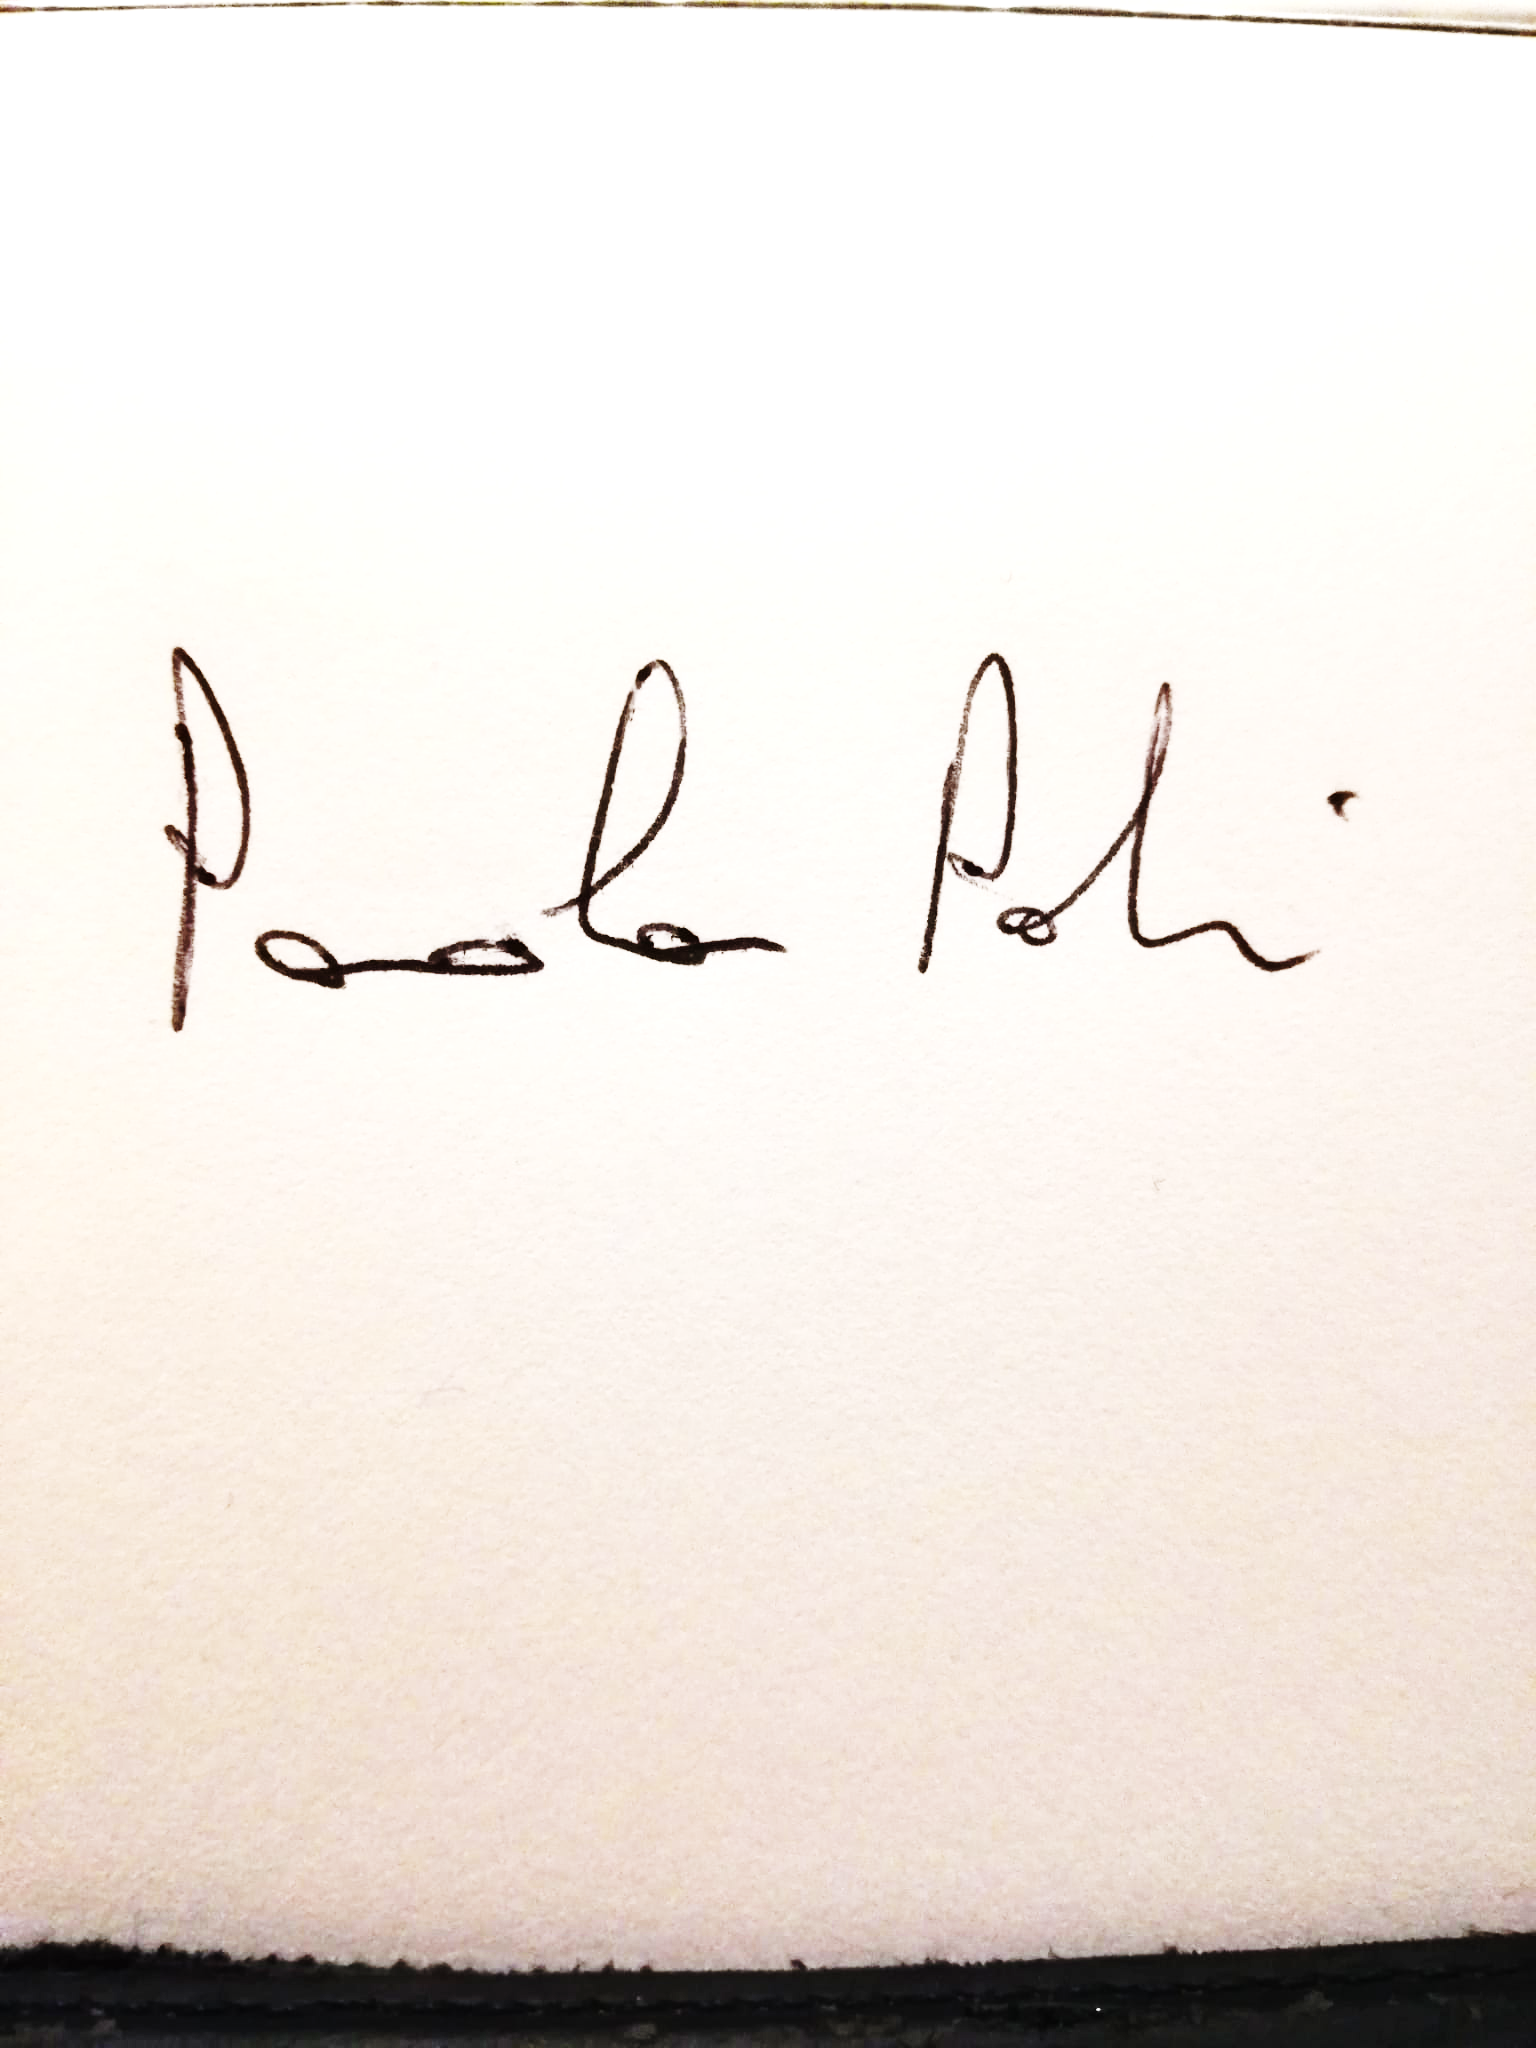 Paola Poli